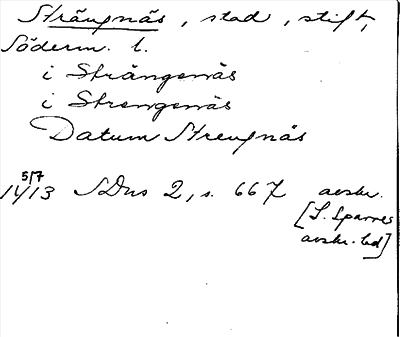 Strängnäs, stad, stift,
Söderm. l.
i Strängenäs
i Strengenäs
Datum Strengnäs
5/7
1413 SDns 2, s. 667 avskr.
[L. Sparres
avskr. bd]